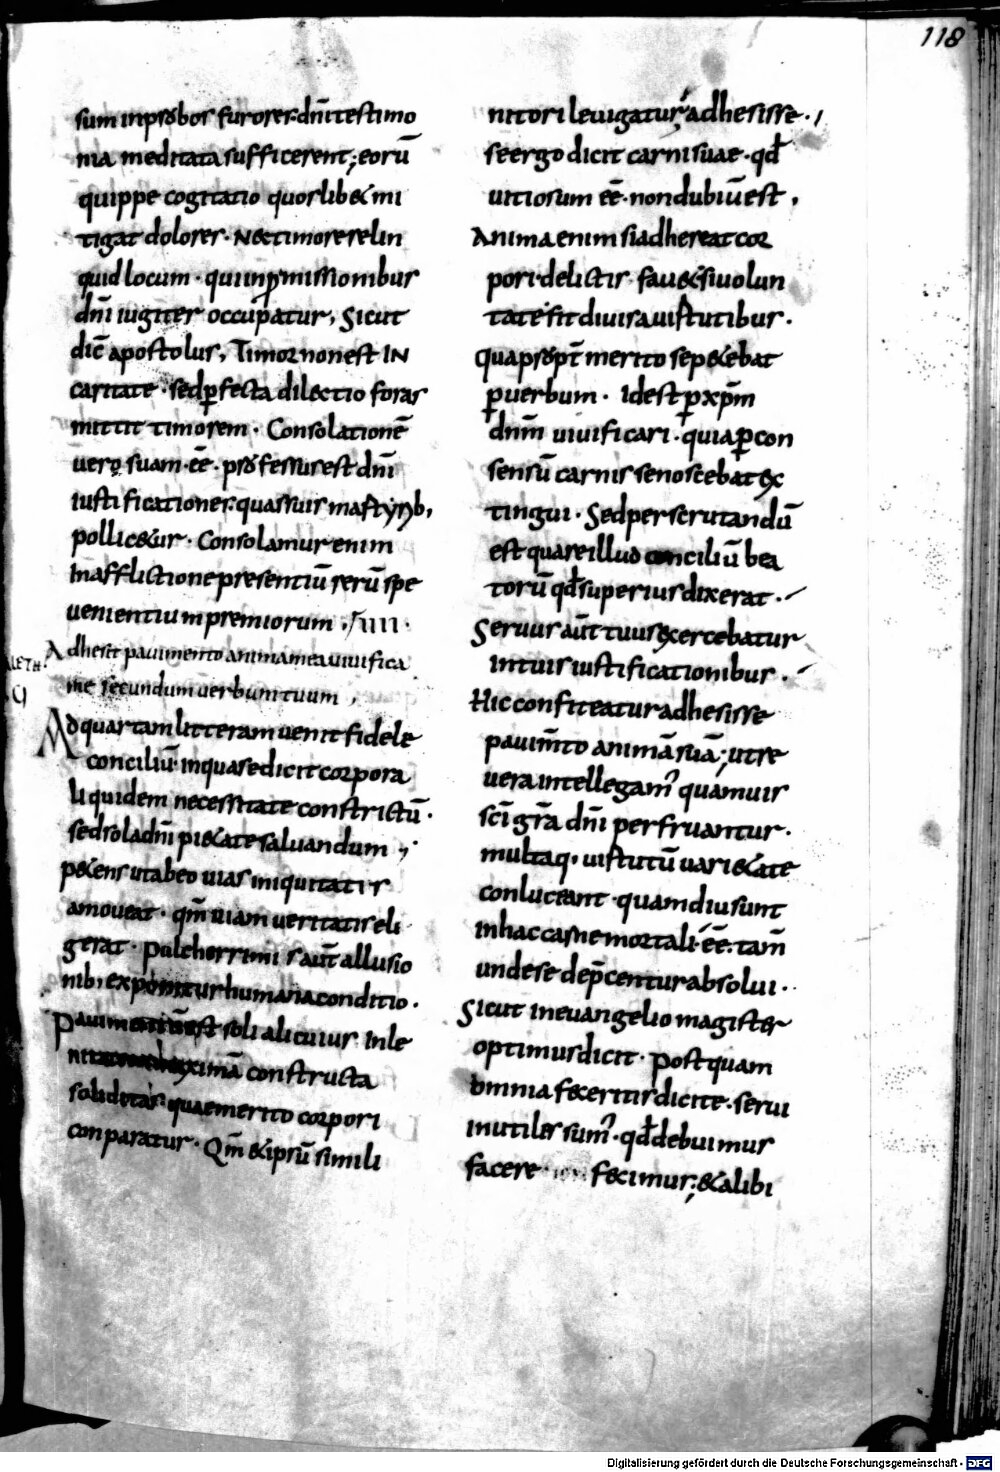 118
sum inprobos furores. dn̄i testimo
nia meditata sufficerent; eorū
quippe cogitatio quoslib& mi
tigat dolores. Nec timore relin
quid locum. qui inp̄missionibus
dn̄i iugiter occupatur, Sicut
dic̄ apostolus, Timor non est IN
caritate. sed p̄fecta dilectio foras
mittit timorem. Consolationē
vero suam. ēē. professus est dn̄i
iustificationes. quas suis martyrib,
pollic&ur. Consolamur enim
In afflictione presentiū rerū spe
venientium premiorum. IIII.
DELETH. Adhesit pavimento anima mea vivifica
me secundum verbum tuum,
Ad quartam litteram venit fidele
conciliū. in qua se dicit corpora
li quidem necessitate constrictū.
sed sola dn̄i pi&ate salvandum;
p&ens ut ab eo vias iniquitatis
amoveat. qm̄ viam veritatis eli
gerat. pulcherrimi s aūt allusio
nib; exponitur humana conditio.
Pavimentū est soli alicuius. Inle
constructa
soliditas. quae merito corpori
conparatur. Qm̄ & ipsū simili
nitori levigatur, adhesisse.
se ergo dicit carni suae. qd̄
vitiosum ēē. non dubiū est,
Anima enim si adhereat cor
pori. delictis. fav& si volun
tate fit divisa virtutibus.
quapropt̄ merito se p&ebat
p̄ verbum. Id est p̄ xp̄m
dn̄m vivificari. quia p̄ con
sensū carnis se noscebat ex
tingui. Sed perscrutandū
est quare illud conciliū bea
torū qd̄ superius dixerat.
Servus aūt tuus exercebatur
in tuis iustificationibus.
Hic confiteatur adhesisse
pavim̄to animā suā; ut re
vera intellegam' quamvis
sc̄i gr̄a dn̄i perfruantur.
multaq. virtutū vari&ate
conluceant. quamdiu sunt
in hac carne mortali. ēē. tam̄
unde se dep̄centur absolui.
Sicut in evangelio magister
optimus dicit. postquam
omnia fec&eritis dicite. servi
inutiles sum'. qd̄ debuimus
facere. fecimus; & alibi
Digitalisierung gefördert durch die Deutsche Forschungsgemeinschaft - DFG